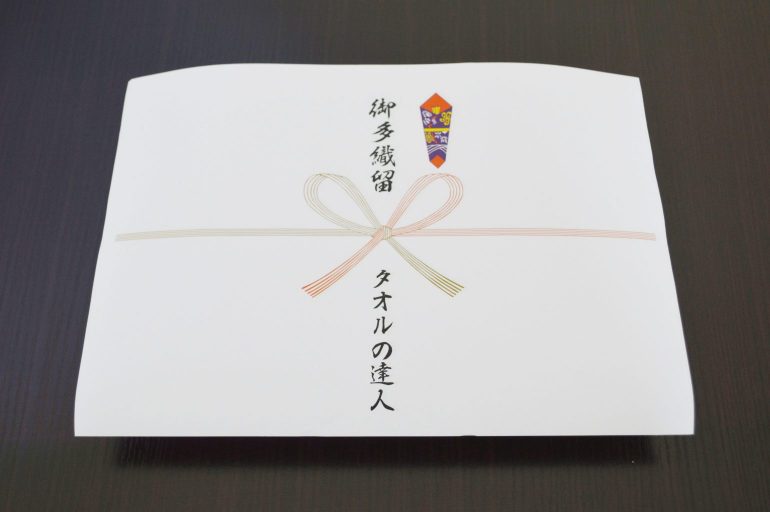 御多織留
タオルの達人